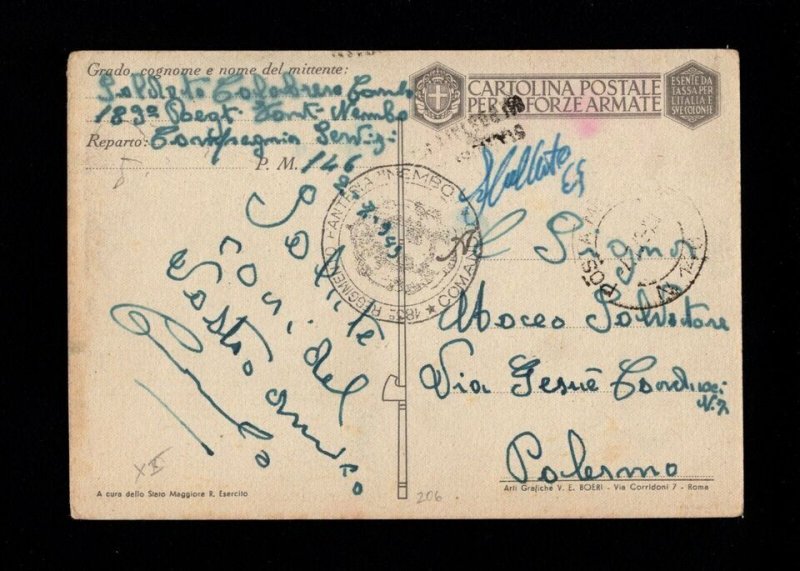 Grado, cognome e nome del mittente:
Soldato Calabrese
183º Regt Fant. Nembo
Reparto: Compagnia Servizi
P. M. 146
CARTOLINA POSTALE
PER LE FORZE ARMATE
ESENTE DA
TASSA PER
L'ITALIA E
SVE COLONIE
183º REGGIMENTO FANTERIA "NEMBO"
COMANDO
POSTA
Salute
così del
Vostro amico
Signor
Macco Salvatore
Via Gesuè Carducci
N. 7
Palermo
XII
206
A cura dello Stato Maggiore R. Esercito
Arti Grafiche V. E. BOERI - Via Corridoni 7 - Roma